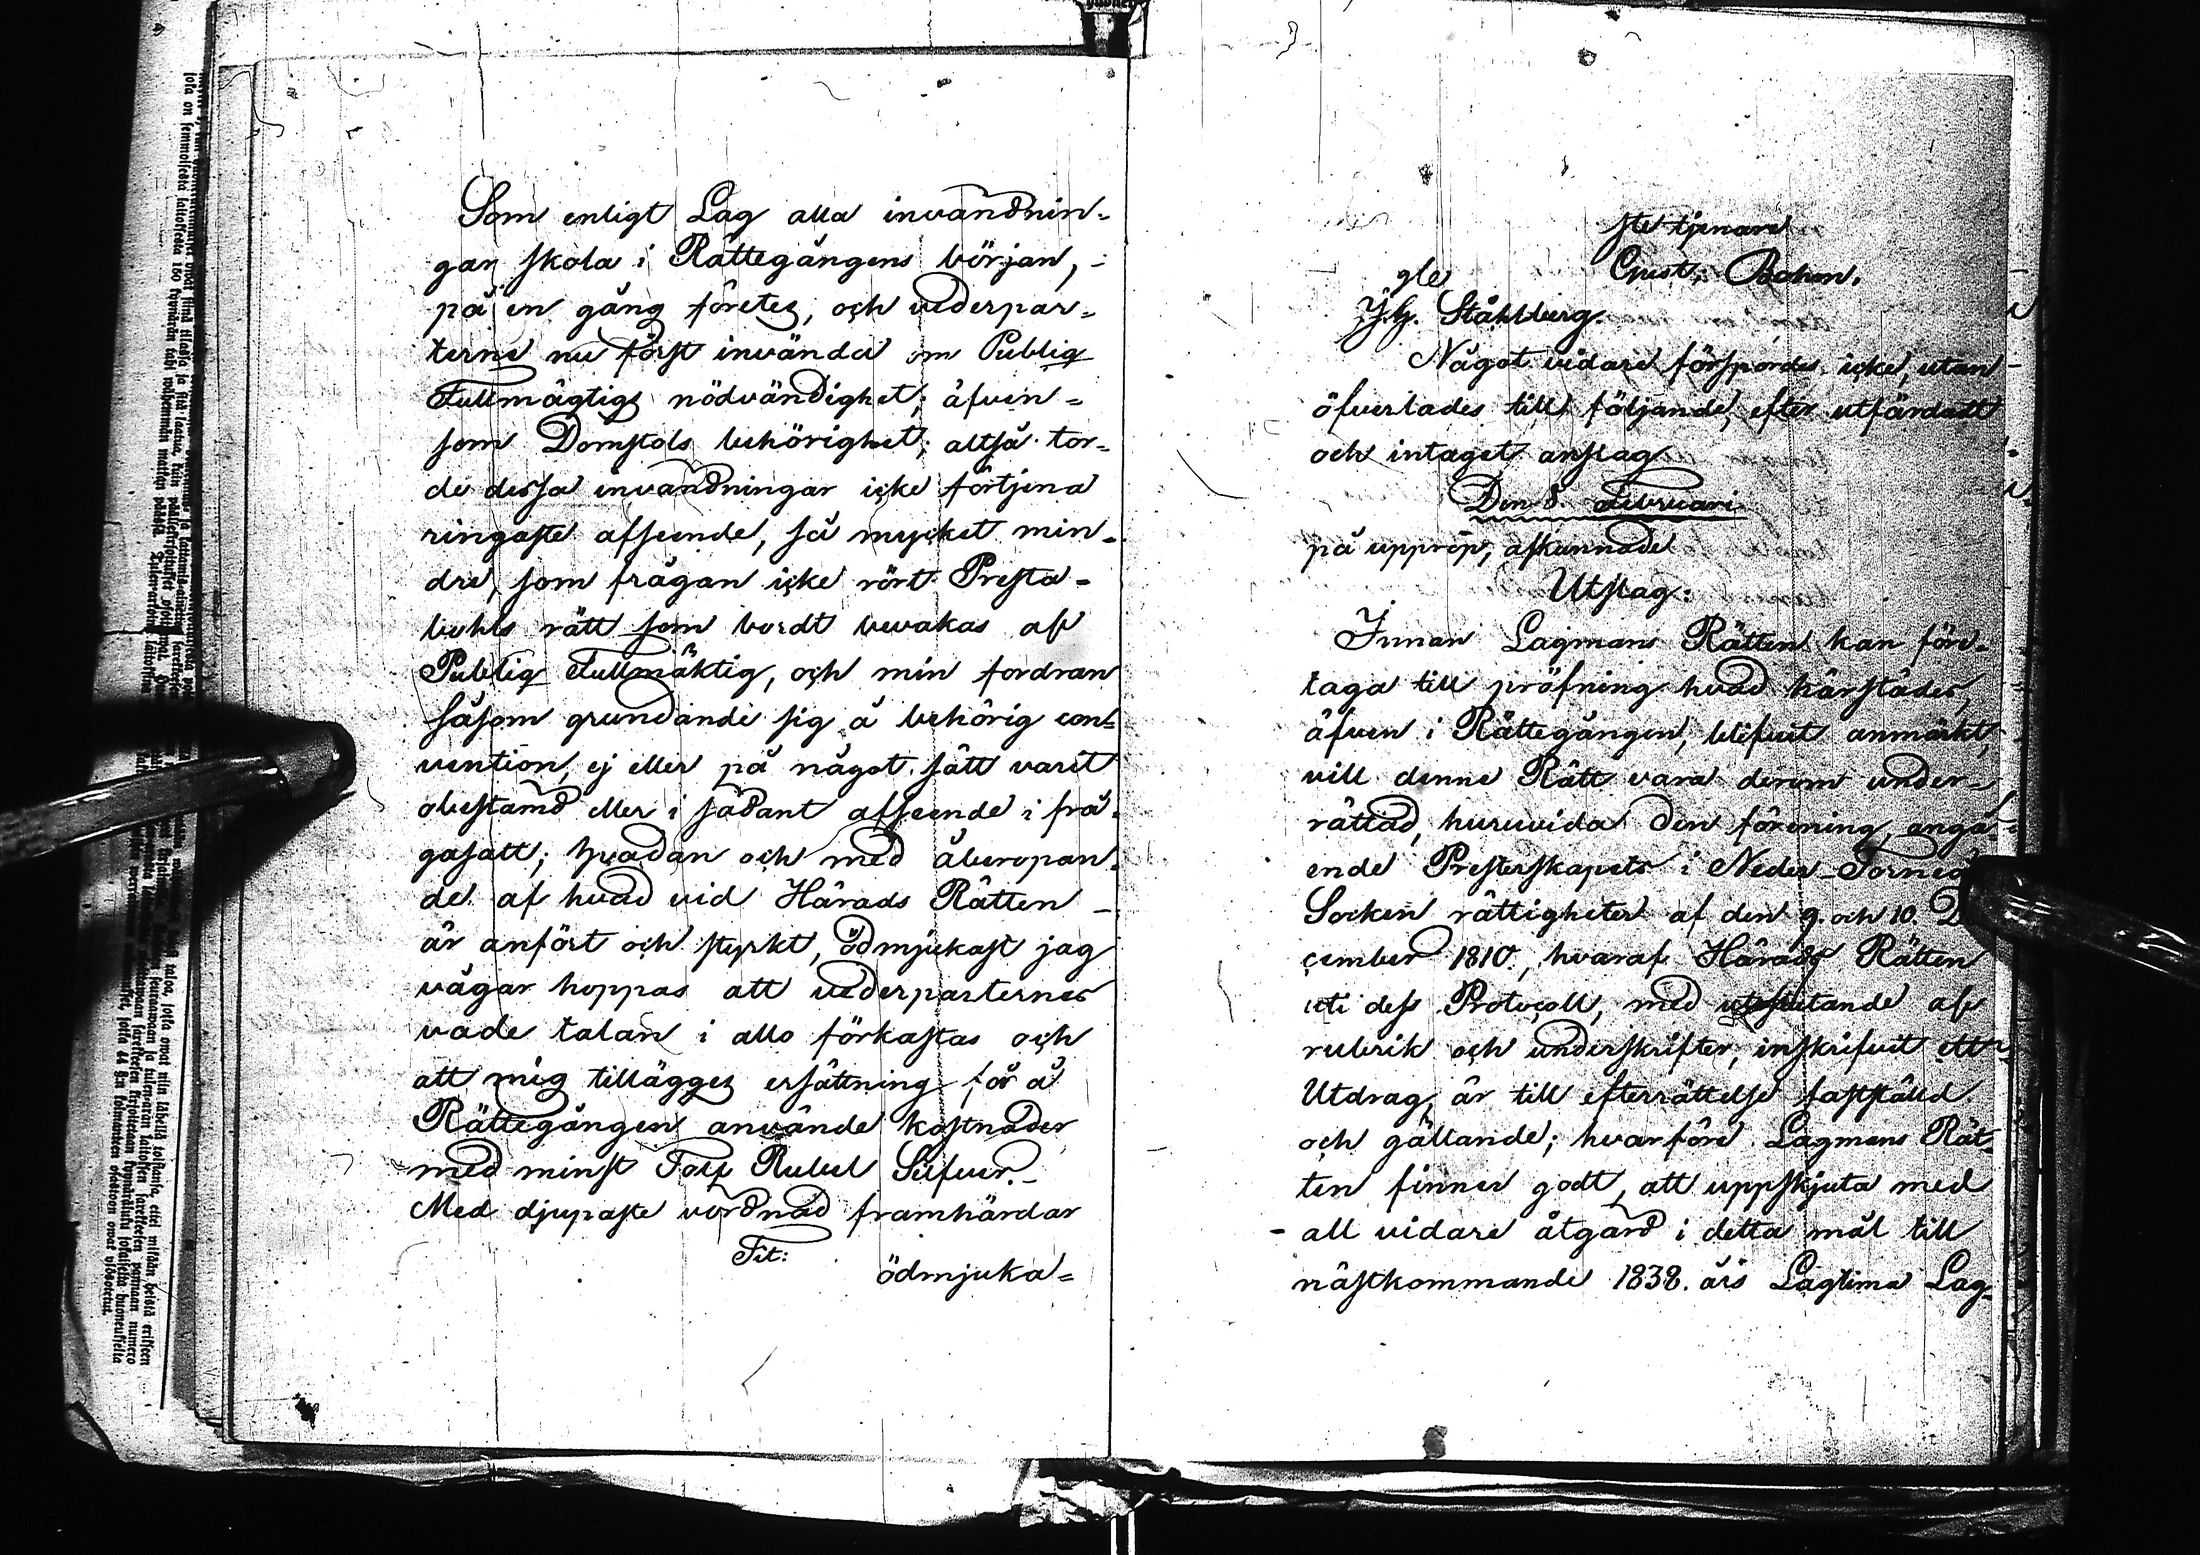 Som enligt Lag alla invändnin-
gar skola i Rättegångens början,
på en gång företes, och vederpar-
terne nu först invända om Publiq
Fullmägtigs nödvändighet; äfven-
som Domstols behörighet; altså tor-
de dessa invändningar icke förtjena
ringaste afseende, så mycket min-
dre, som frågan icke rört Presta-
bohls rätt som bordt bevakas af
Publiq Fullmäktig, och min fordran
såsom grundande sig å behörig con-
vention, ej eller på något sätt varit
obestämd eller i sådant afseende i frå-
gasatt; hvadan och med åberopan-
de af hvad vid Härads Rätten
är anfört och styrkt, ödmjukast jag
vågar hoppas att vederparternes
vade talan i allo förkastas och
att mig tillägges ersättning för å
Rättegången använde kostnader
med minst Tolf Rubel Silfver.
Med djupaste vördnad framhärdar
Tit:
ödmjuka-
ste tjenare
Gust: Bohm.
gle
J.G. Ståhlberg.
Något vidare förspordes icke, utan
öfverlades till följande, efter utfärdadt
och intaget anslag
Den 8. Februari
på upprop, afkunnade
Utslag:
Innan Lagmans Rätten kan före-
taga till pröfning hvad härstädes,
äfven i Rättegången, blifvit anmärkt,
vill denne Rätt vara derom under-
rättad, huruvida den förening, angå-
ende Presterskapets i Neder-Torneå
Socken rättigheter af den 9. och 10. De
cember 1810., hvaraf Härads Rätten
uti dess Protocoll, med uteslutande af
rubrik och underskrifter, inskrifvit ett
Utdrag, är till efterrättelse fastställd
och gällande; hvarföre Lagmans Rät-
ten finner godt, att uppskjuta med
all vidare åtgärd i detta mål till
nästkommande 1838. års Lagtima Lag-